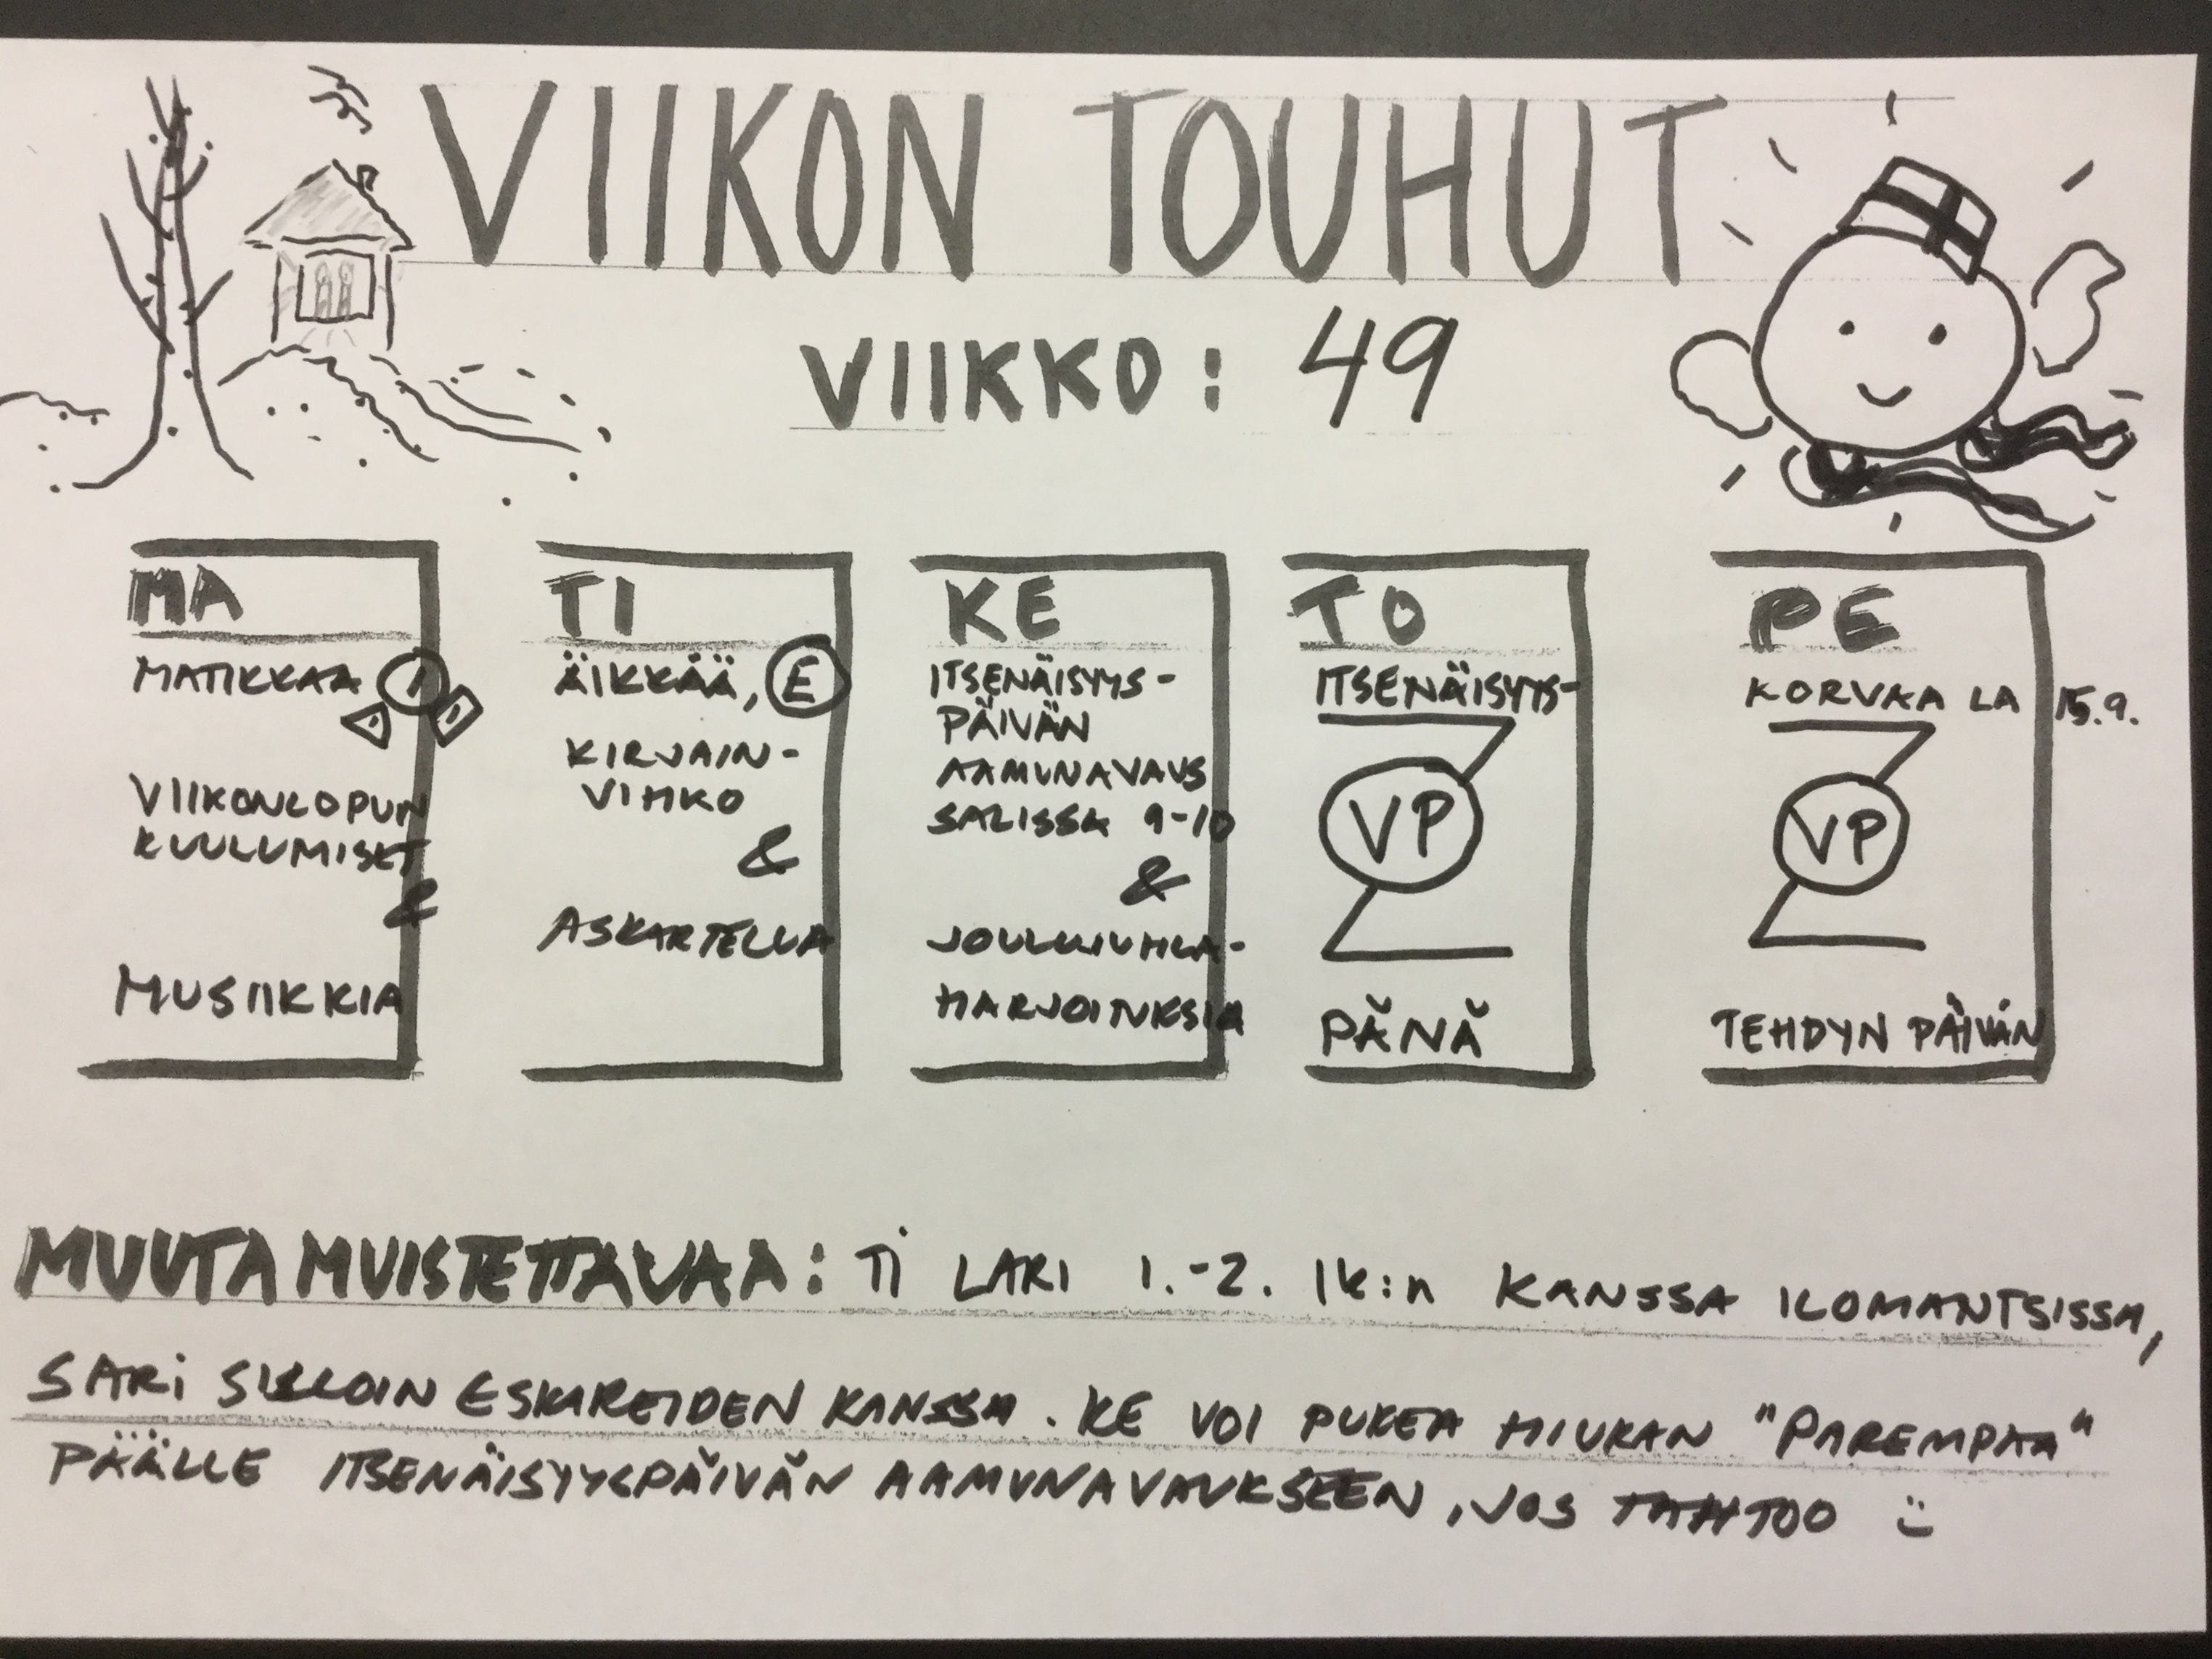 VIIKON TOUHUT
VIIKKO: 49
MA
MATIKKAA 1
VIIKONLOPUN
KUULUMISET
&
MUSIIKKIA
TI
ÄIKKÄÄ, E
KIRJAIN-
VIHKO
&
ASKARTELUA
KE
ITSENÄISYYS-
PÄIVÄN
AAMUNAVAUS
SALISSA 9-10
&
JOULUJUHLA-
HARJOITUKSIA
TO
ITSENÄISYYS-
VP
PÄNÄ
PE
KORVAA LA 15.9.
VP
TEHDYN PÄIVÄN
MUUTA MUISTETTAVAA: Ti LARI 1.-2. lk:n KANSSA ILOMANTSISSA,
SARi SILLOIN ESKAREIDEN KANSSA. KE VOI PUKEA HIUKAN "PAREMPAA"
PÄÄLLE ITSENÄISYYSPÄIVÄN AAMUNAVAUKSEEN, JOS TAHTOO :)